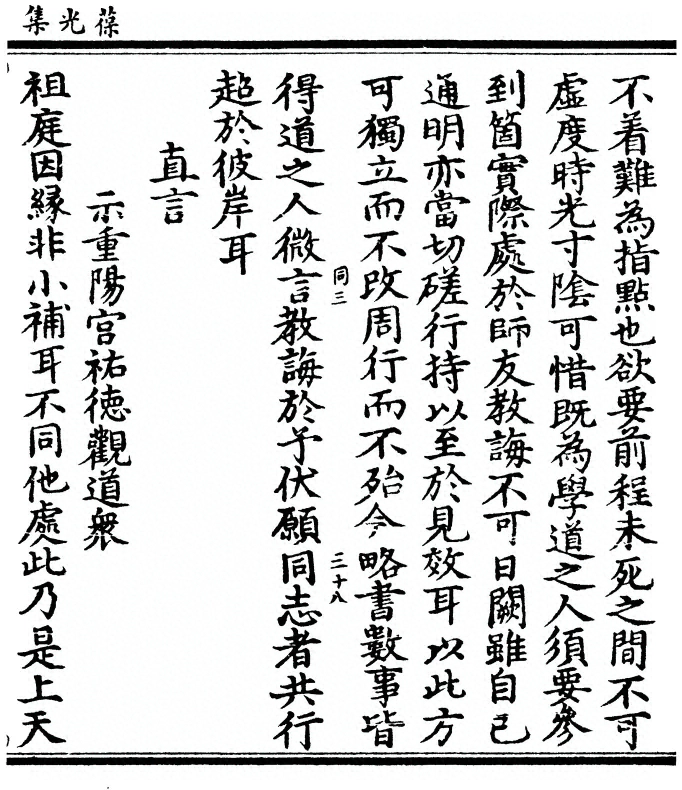 葆光集
不着難為指點也欲要前程未死之間不可
虛度時光寸陰可惜既為學道之人須要參
到箇實際處於師友教誨不可日闕雖自己
通明亦當切磋行持以至於見效耳以此方
可獨立而不改周行而不殆今略書數事皆
同三
三十八
得道之人微言教誨於予伏願同志者共行
超於彼岸耳
直言
示重陽宮祐德觀道衆
祖庭因緣非小補耳不同他處此乃是上天